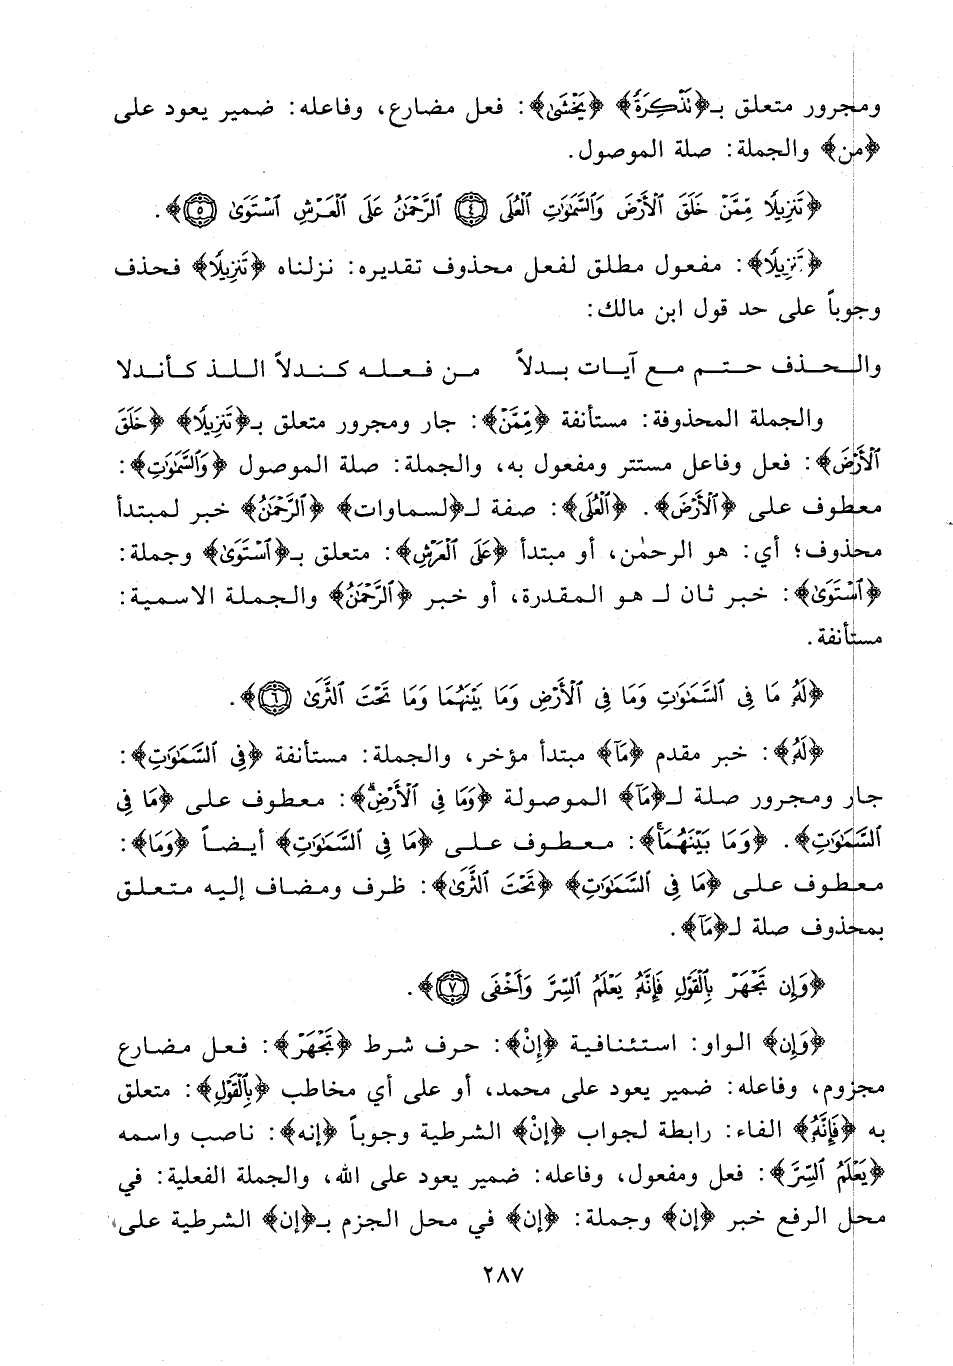 ومجرور متعلق بـ﴿نَذْكِرَةً﴾ ﴿يَخْشَىٰ﴾: فعل مضارع، وفاعله: ضمير يعود على
﴿من﴾ والجملة: صلة الموصول.
﴿تَنزِيلًا مِّمَّنْ خَلَقَ ٱلْأَرْضَ وَٱلسَّمَٰوَٰتِ ٱلْعُلَى ۝٤ ٱلرَّحْمَٰنُ عَلَى ٱلْعَرْشِ ٱسْتَوَىٰ ۝٥﴾.
﴿تَنزِيلًا﴾: مفعول مطلق لفعل محذوف تقديره: نزلناه ﴿تَنزِيلًا﴾ فحذف
وجوباً على حد قول ابن مالك:
والـحـذف حـتـم مـع آيـات بـدلاً من فـعـلـه كـنـدلاً الـلـذ كـأنـدلا
والجملة المحذوفة: مستأنفة ﴿مِّمَّنْ﴾: جار ومجرور متعلق بـ﴿تَنزِيلًا﴾ ﴿خَلَقَ
ٱلْأَرْضَ﴾: فعل وفاعل مستتر ومفعول به، والجملة: صلة الموصول ﴿وَٱلسَّمَٰوَٰتِ﴾:
معطوف على ﴿ٱلْأَرْضَ﴾. ﴿ٱلْعُلَى﴾: صفة لـ﴿لسماوات﴾ ﴿ٱلرَّحْمَٰنُ﴾ خبر لمبتدأ
محذوف؛ أي: هو الرحمٰن، أو مبتدأ ﴿عَلَى ٱلْعَرْشِ﴾: متعلق بـ﴿ٱسْتَوَىٰ﴾ وجملة:
﴿ٱسْتَوَىٰ﴾: خبر ثان لـ هو المقدرة، أو خبر ﴿ٱلرَّحْمَٰنُ﴾ والجملة الاسمية:
مستأنفة.
﴿لَهُۥ مَا فِى ٱلسَّمَٰوَٰتِ وَمَا فِى ٱلْأَرْضِ وَمَا بَيْنَهُمَا وَمَا تَحْتَ ٱلثَّرَىٰ ۝٦﴾.
﴿لَهُۥ﴾: خبر مقدم ﴿مَآ﴾ مبتدأ مؤخر، والجملة: مستأنفة ﴿فِى ٱلسَّمَٰوَٰتِ﴾:
جار ومجرور صلة لـ﴿مَآ﴾ الموصولة ﴿وَمَا فِى ٱلْأَرْضِۗ﴾: معطوف على ﴿مَا فِى
ٱلسَّمَٰوَٰتِ﴾. ﴿وَمَا بَيْنَهُمَاۚ﴾: معطوف على ﴿مَا فِى ٱلسَّمَٰوَٰتِ﴾ أيضاً ﴿وَمَا﴾:
معطوف على ﴿مَا فِى ٱلسَّمَٰوَٰتِ﴾ ﴿تَحْتَ ٱلثَّرَىٰ﴾: ظرف ومضاف إليه متعلق
بمحذوف صلة لـ﴿مَآ﴾.
﴿وَإِن تَجْهَرْ بِٱلْقَوْلِ فَإِنَّهُۥ يَعْلَمُ ٱلسِّرَّ وَأَخْفَى ۝٧﴾.
﴿وَإِن﴾ الواو: استئنافية ﴿إِنْ﴾: حرف شرط ﴿تَجْهَرْ﴾: فعل مضارع
مجزوم، وفاعله: ضمير يعود على محمد، أو على أي مخاطب ﴿بِٱلْقَوْلِ﴾: متعلق
به ﴿فَإِنَّهُۥ﴾ الفاء: رابطة لجواب ﴿إِنْ﴾ الشرطية وجوباً ﴿إنه﴾: ناصب واسمه
﴿يَعْلَمُ ٱلسِّرَّ﴾: فعل ومفعول، وفاعله: ضمير يعود على الله، والجملة الفعلية: في
محل الرفع خبر ﴿إن﴾ وجملة: ﴿إن﴾ في محل الجزم بـ﴿إن﴾ الشرطية على
٢٨٧